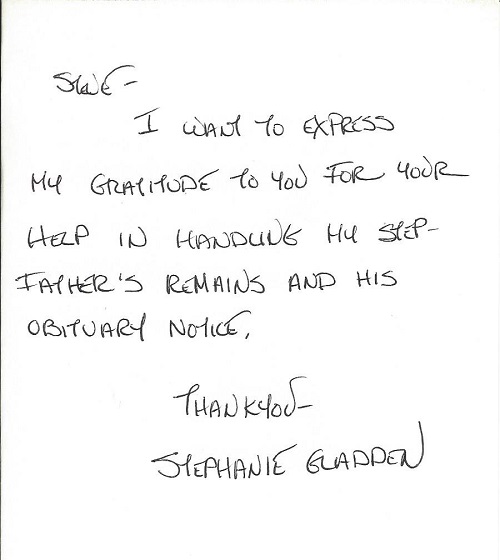 STEVE-
I WANT TO EXPRESS
MY GRATITUDE TO YOU FOR YOUR
HELP IN HANDLING MY STEP-
FATHER'S REMAINS AND HIS
OBITUARY NOTICE.
THANK YOU-
STEPHANIE GLADDEN